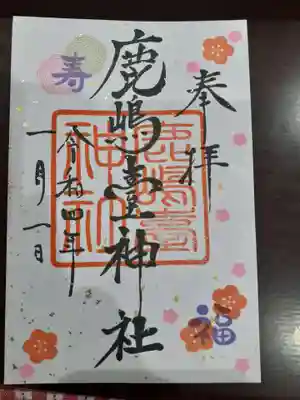 奉拝
鹿嶋臺神社
鹿嶋臺
神社
令和四年
一月一日
寿
福